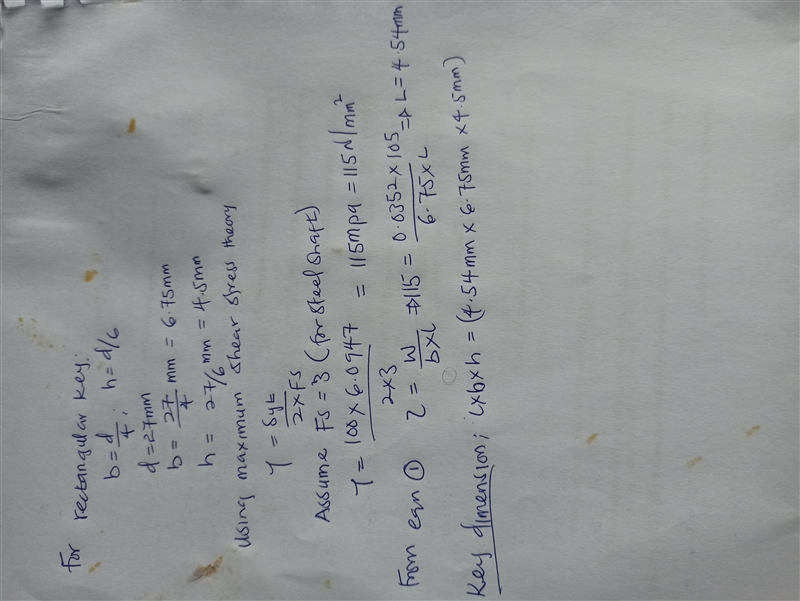 For rectangular key:
b = d/4; h = d/6
d = 27mm
b = 27/4 mm = 6.75mm
h = 27/6 mm = 4.5mm
Using maximum shear stress theory
τ = Syt / 2×Fs
Assume Fs = 3 (for steel shaft)
τ = 100 × 6.0947 / 2×3 = 115mpa = 115N/mm²
From eqn ① τ = W / b×L ⇒ 115 = 0.0352×10⁵ / 6.75×L ⇒ L = 4.54mm
Key dimension; L×b×h = (4.54mm × 6.75mm × 4.5mm)